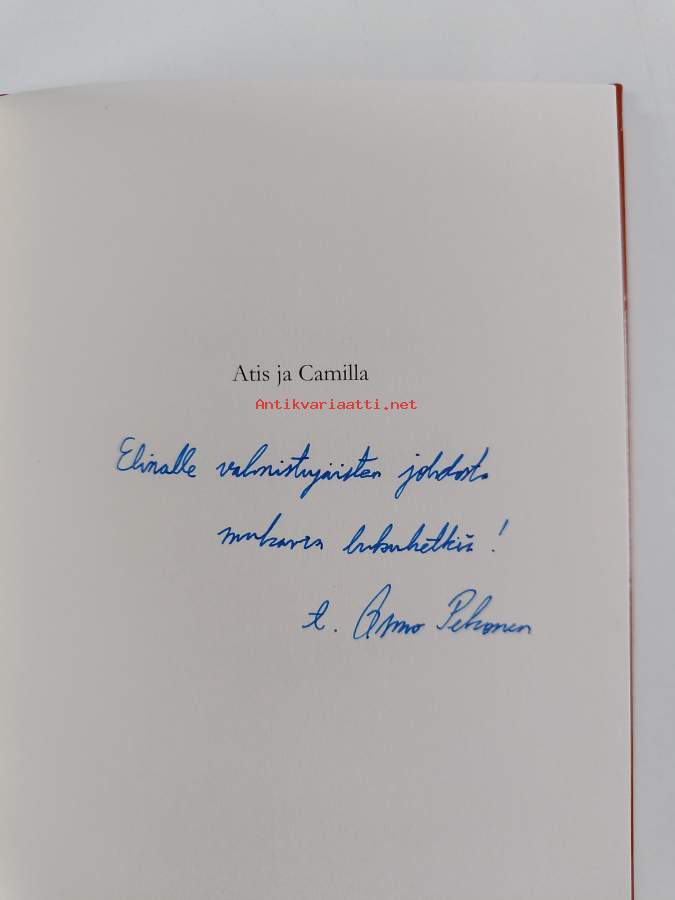 Atis ja Camilla
Antikvariaatti.net
Elinalle valmistujaisten johdosta
mukavia lukuhetkiä!
t. Osmo Pekonen